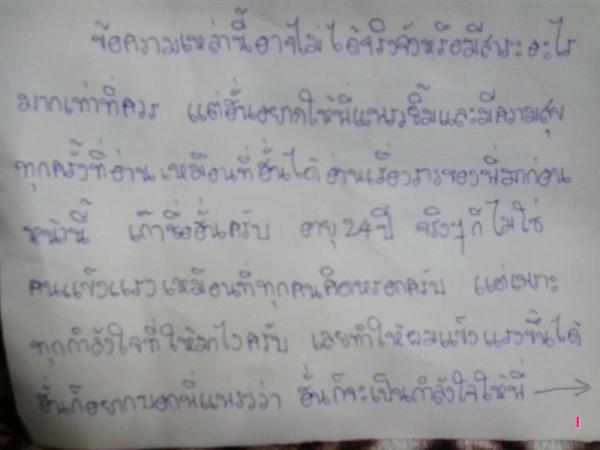 ข้อความเหล่านี้อาจไม่ได้จริงจังหรือมีสาระอะไร
มากเท่าที่ควร แต่ฮั่นอยากให้พี่แพรวยิ้มและมีความสุข
ทุกครั้งที่อ่าน เหมือนที่ฮั่นได้อ่านเรื่องราวของพี่มาก่อน
หน้านี้ เก๊าชื่อฮั่นครับ อายุ 24 ปี จริงๆก็ไม่ใช่
คนแข็งแรงเหมือนที่ทุกคนคิดหรอกครับ แต่เพราะ
ทุกกำลังใจที่ให้มาไงครับ เลยทำให้ผมแข็งแรงขึ้นได้
ฮั่นก็อยากบอกพี่แพรวว่า ฮั่นก็จะเป็นกำลังใจให้พี่ →
1